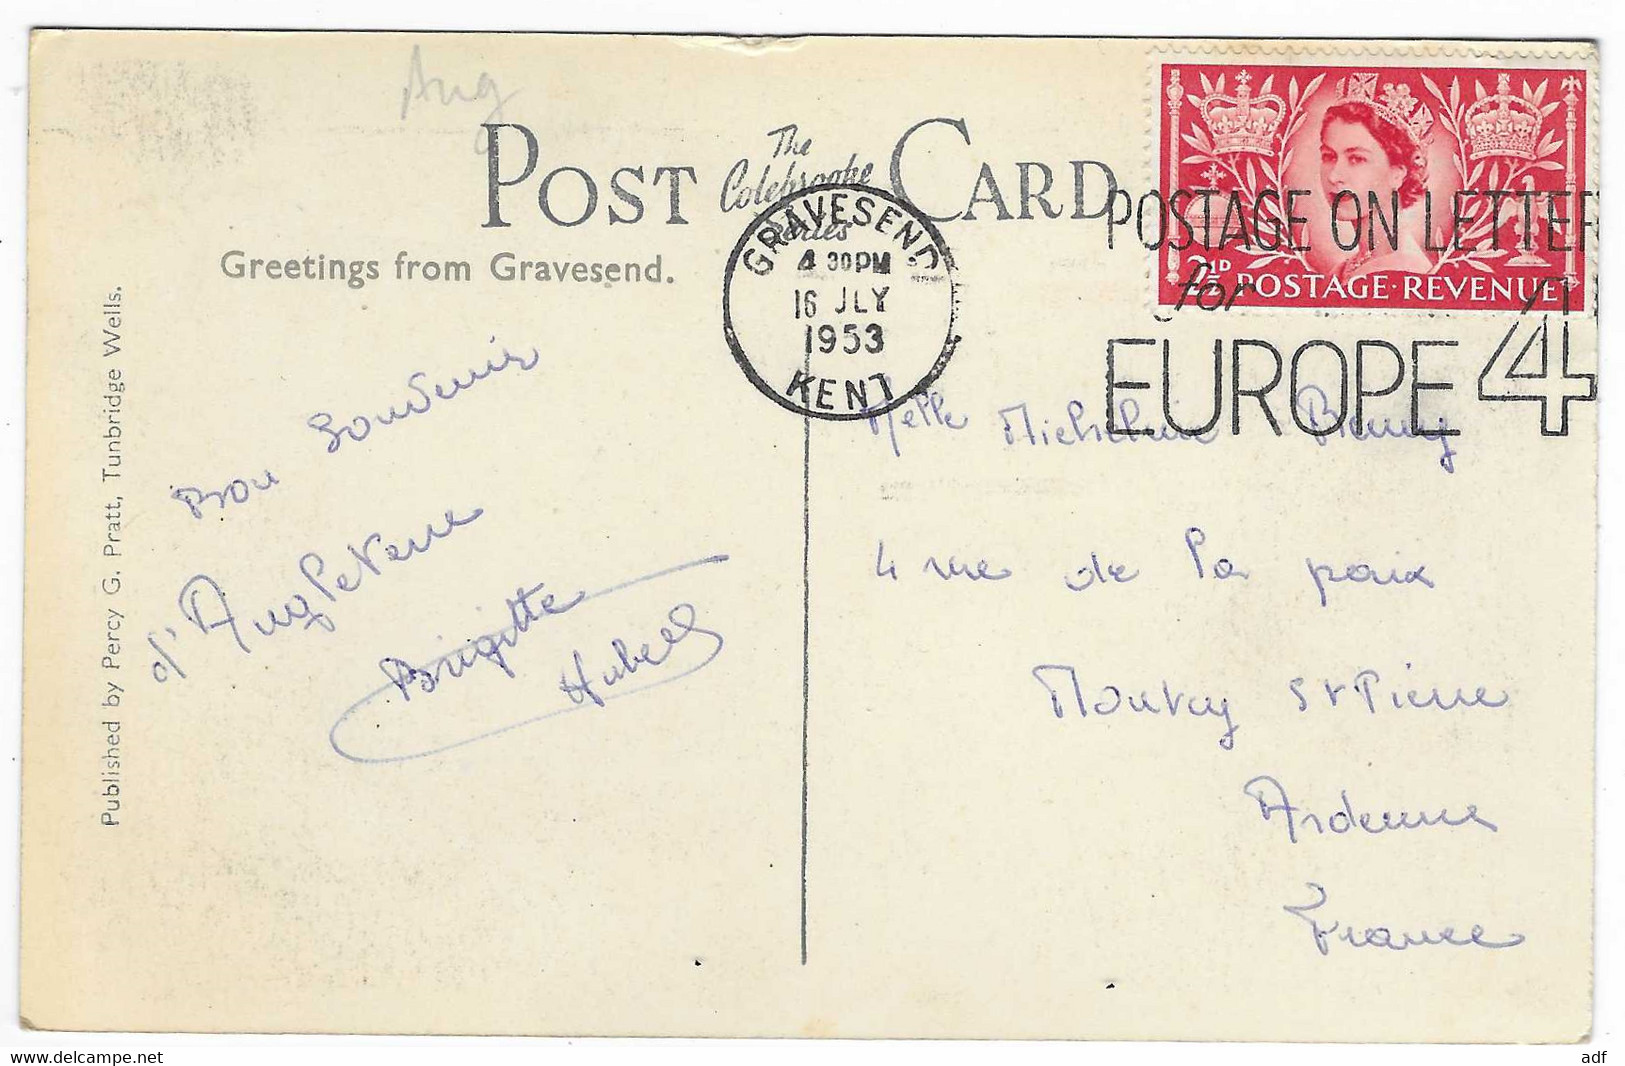 Ang
POST CARD
The
Colebrooke
Series
Greetings from Gravesend.
GRAVESEND
4 30PM
16 JLY
1953
KENT
POSTAGE ON LETTER
for
EUROPE 4
2½D POSTAGE·REVENUE
Published by Percy G. Pratt, Tunbridge Wells.
Bon Souvenir
d'Angleterre
Brigitte
Melle Micheline
4 rue de la paix
St Pierre
Ardennes
France
adf